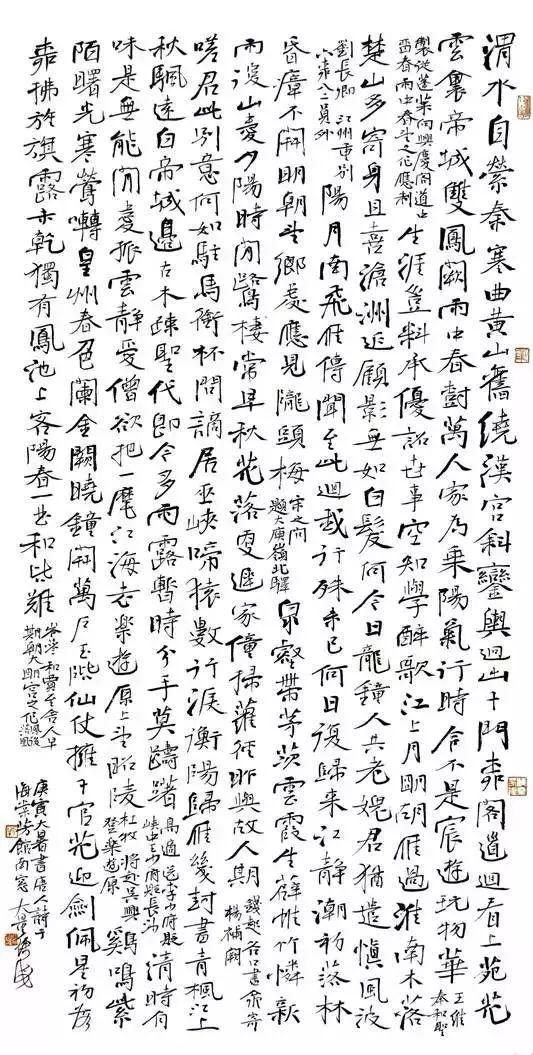 渭水自縈秦塞曲黃山舊繞漢宮斜鑾輿迥出千門柳閣道迴看上苑花
雲裏帝城雙鳳闕雨中春樹萬人家為乘陽氣行時令不是宸遊玩物華王維奉和聖
製從蓬萊向興慶閣道中留春雨中春望之作應制生涯豈料承優詔世事空知學醉歌江上月明胡雁過淮南木落
楚山多寄身且喜滄洲近顧影無如白髮何今日龍鍾人共老媿君猶遣慎風波
劉長卿江州重別薛六柳八二員外陽月南飛雁傳聞至此迴我行殊未已何日復歸來江靜潮初落林
昏瘴不開明朝望鄉處應見隴頭梅宋之問題大庾嶺北驛泉壑帶茅茨雲霞生薜帷竹憐新
雨後山愛夕陽時閒鷺棲常早秋花落更遲家僮掃蘿徑昨與故人期錢起谷口書齋寄楊補闕
嗟君此別意何如駐馬銜杯問謫居巫峽啼猿數行淚衡陽歸雁幾封書青楓江上
秋颿遠白帝城邊古木疎聖代即今多雨露暫時分手莫躊躇高適送李少府貶峽中王少府貶長沙清時有
味是無能閒愛孤雲靜愛僧欲把一麾江海去樂遊原上望昭陵杜牧將赴吳興登樂遊原雞鳴紫
陌曙光寒鶯囀皇州春色闌金闕曉鐘開萬戶玉階仙仗擁千官花迎劍佩星初落
柳拂旌旗露未乾獨有鳳池上客陽春一曲和皆難岑參和賈至舍人早朝大明宮之作
庚寅大暑書唐人詩于
海棠芳館南窗